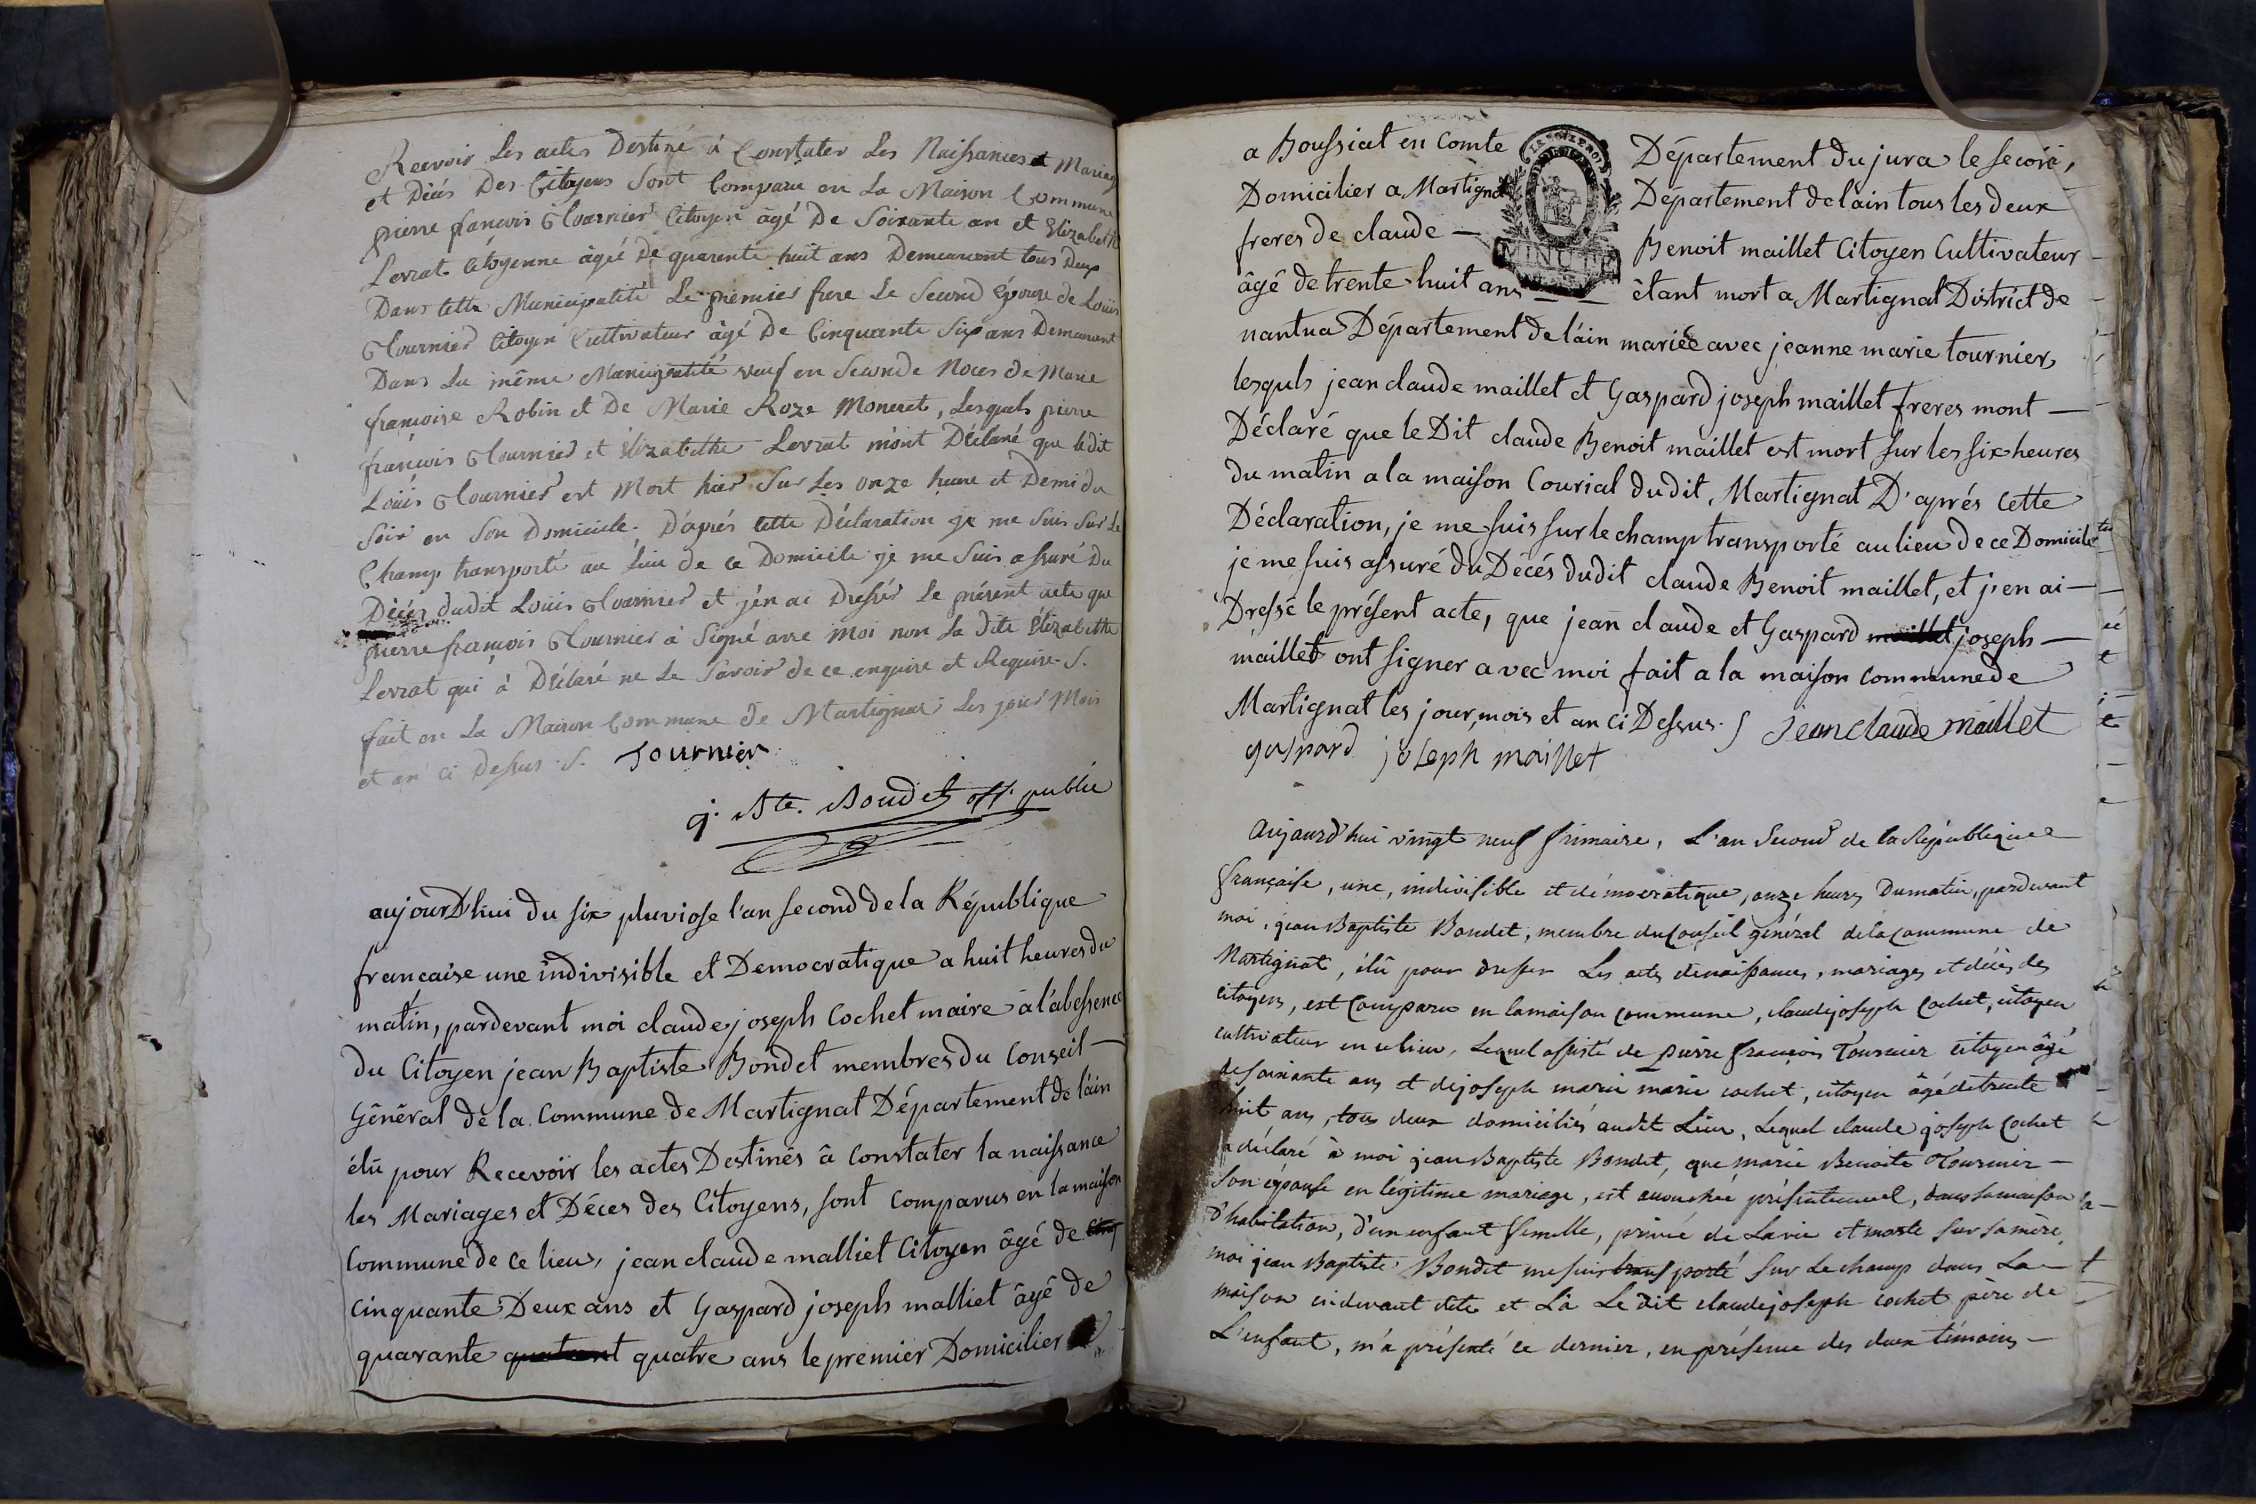 Recevoir Les actes Destiné à Constater Les Naissances et Mariages
et Décés Des Citoyens Sont Comparu en La Maison Commune
pierre françois Tournier Citoyen âgé De Soixante an et Elizabeth
Levrat Citoyenne âgée De quarente huit ans Demeurent tous Deux
Dans cette Municipalité Le premier frere Le Second Epouse de Louis
Tournier Citoyen Cultivateur âgé De Cinquante Six ans Demeurent
Dans La même Municipalité veuf en Seconde Noces de Marie
françoise Robin et De Marie Roze Moneret, Lesquels pierre
françois Tournier et Elizabethe Levrat m'ont Déclaré que ledit
Louis Tournier est Mort hier Sur Les onze heure et Demi du
Soir en Son Domicile. D'aprés Cette Déclaration je me Suis Sur Le
Champ transporté au Lieu de ce Domicile je me Suis assuré Du
Décés dudit Louis Tournier et j'en ai Dressé Le présent acte que
pierre françois Tournier à Signé avec moi non La dite Elizabethe
Levrat qui à Déclaré ne Le Savoir de ce enquise et Requise. S.
fait en La Maison Commune de Martignat Les jour Mois
et an ci Dessus. S. Tournier
j. Bte. Bondet off. public
aujourD'hui du six pluviose l'an second de la République
francaise une indivisible et Democratique a huit heures du
matin, pardevant moi claude joseph Cochet maire a l'abessence
du Citoyen jean Baptiste Bondet membres du Conseil —
Général de la Commune de Martignat Département de l'ain
élû pour Recevoir les actes Destinés â Constater la naissance
les Mariages et Déces des Citoyens, sont comparus en la maison
Commune de ce lieu, jean claude malliet Citoyen âgé de cinq
cinquante Deux ans et Gaspard joseph malliet âgé de
quarante quatre ans le premier Domicilier
a Boussiat en Comte Département du jura le second,
Domicilier a Martignat Département de lain tous les deux
freres de claude — Benoit maillet Citoyen Cultivateur
âgé de trente huit ans êtant mort a Martignat District de
nantua Département de l'ain mariée avec jeanne marie tournier,
lesquls jean claude maillet et Gaspard joseph maillet freres mont —
Déclaré que le Dit claude Benoit maillet est mort sur les six heures
du matin a la maison Courial dudit Martignat D'aprés cette
Déclaration, je me suis sur le champ transporté au lieu de ce Domicile
je me suis assuré du Décés dudit claude Benoit maillet, et j'en ai —
Dressé le présent acte, que jean claude et Gaspard maillet joseph —
maillet ont signer avec moi fait a la maison commune de
Martignat les jour, mois et an ci Dessus. S jean claude maillet
gaspard joseph maillet
MINUTE
Aujourd'hui vingt neuf frimaire, L'an Second de la République
française, une, indivisible et démocratique, onze heures Dumatin, pardevant
moi, jean Baptiste Bondet, membre du Conseil général de la commune de
Martignat, élû pour dresser Les actes de naissances, mariages et décès des
citoyens, est Comparu en la maison commune, claude joseph Cochet, citoyen
cultivateur en ce lieu, Lequel assisté de pierre françois Tournier citoyen âgé
de soixante ans et de joseph marie marie cochet, citoyen âgé de trente
huit ans, tous deux domiciliés audit Lieu, Lequel claude joseph Cochet
a déclaré à moi jean Baptiste Bondet, que marie Benoite Tournier —
Son épouse en légitime mariage, est accouchée présentement, dans sa maison
d'habitation, d'un enfant femelle, privée de La vie et morte sur sa mère,
moi jean Baptiste Bondet me suis transporté sur Le champ dans La —
maison cidevant dite et Là Le dit claude joseph cochet père de
L'enfant, m'a présenté ce dernier, en présence des deux témoins —